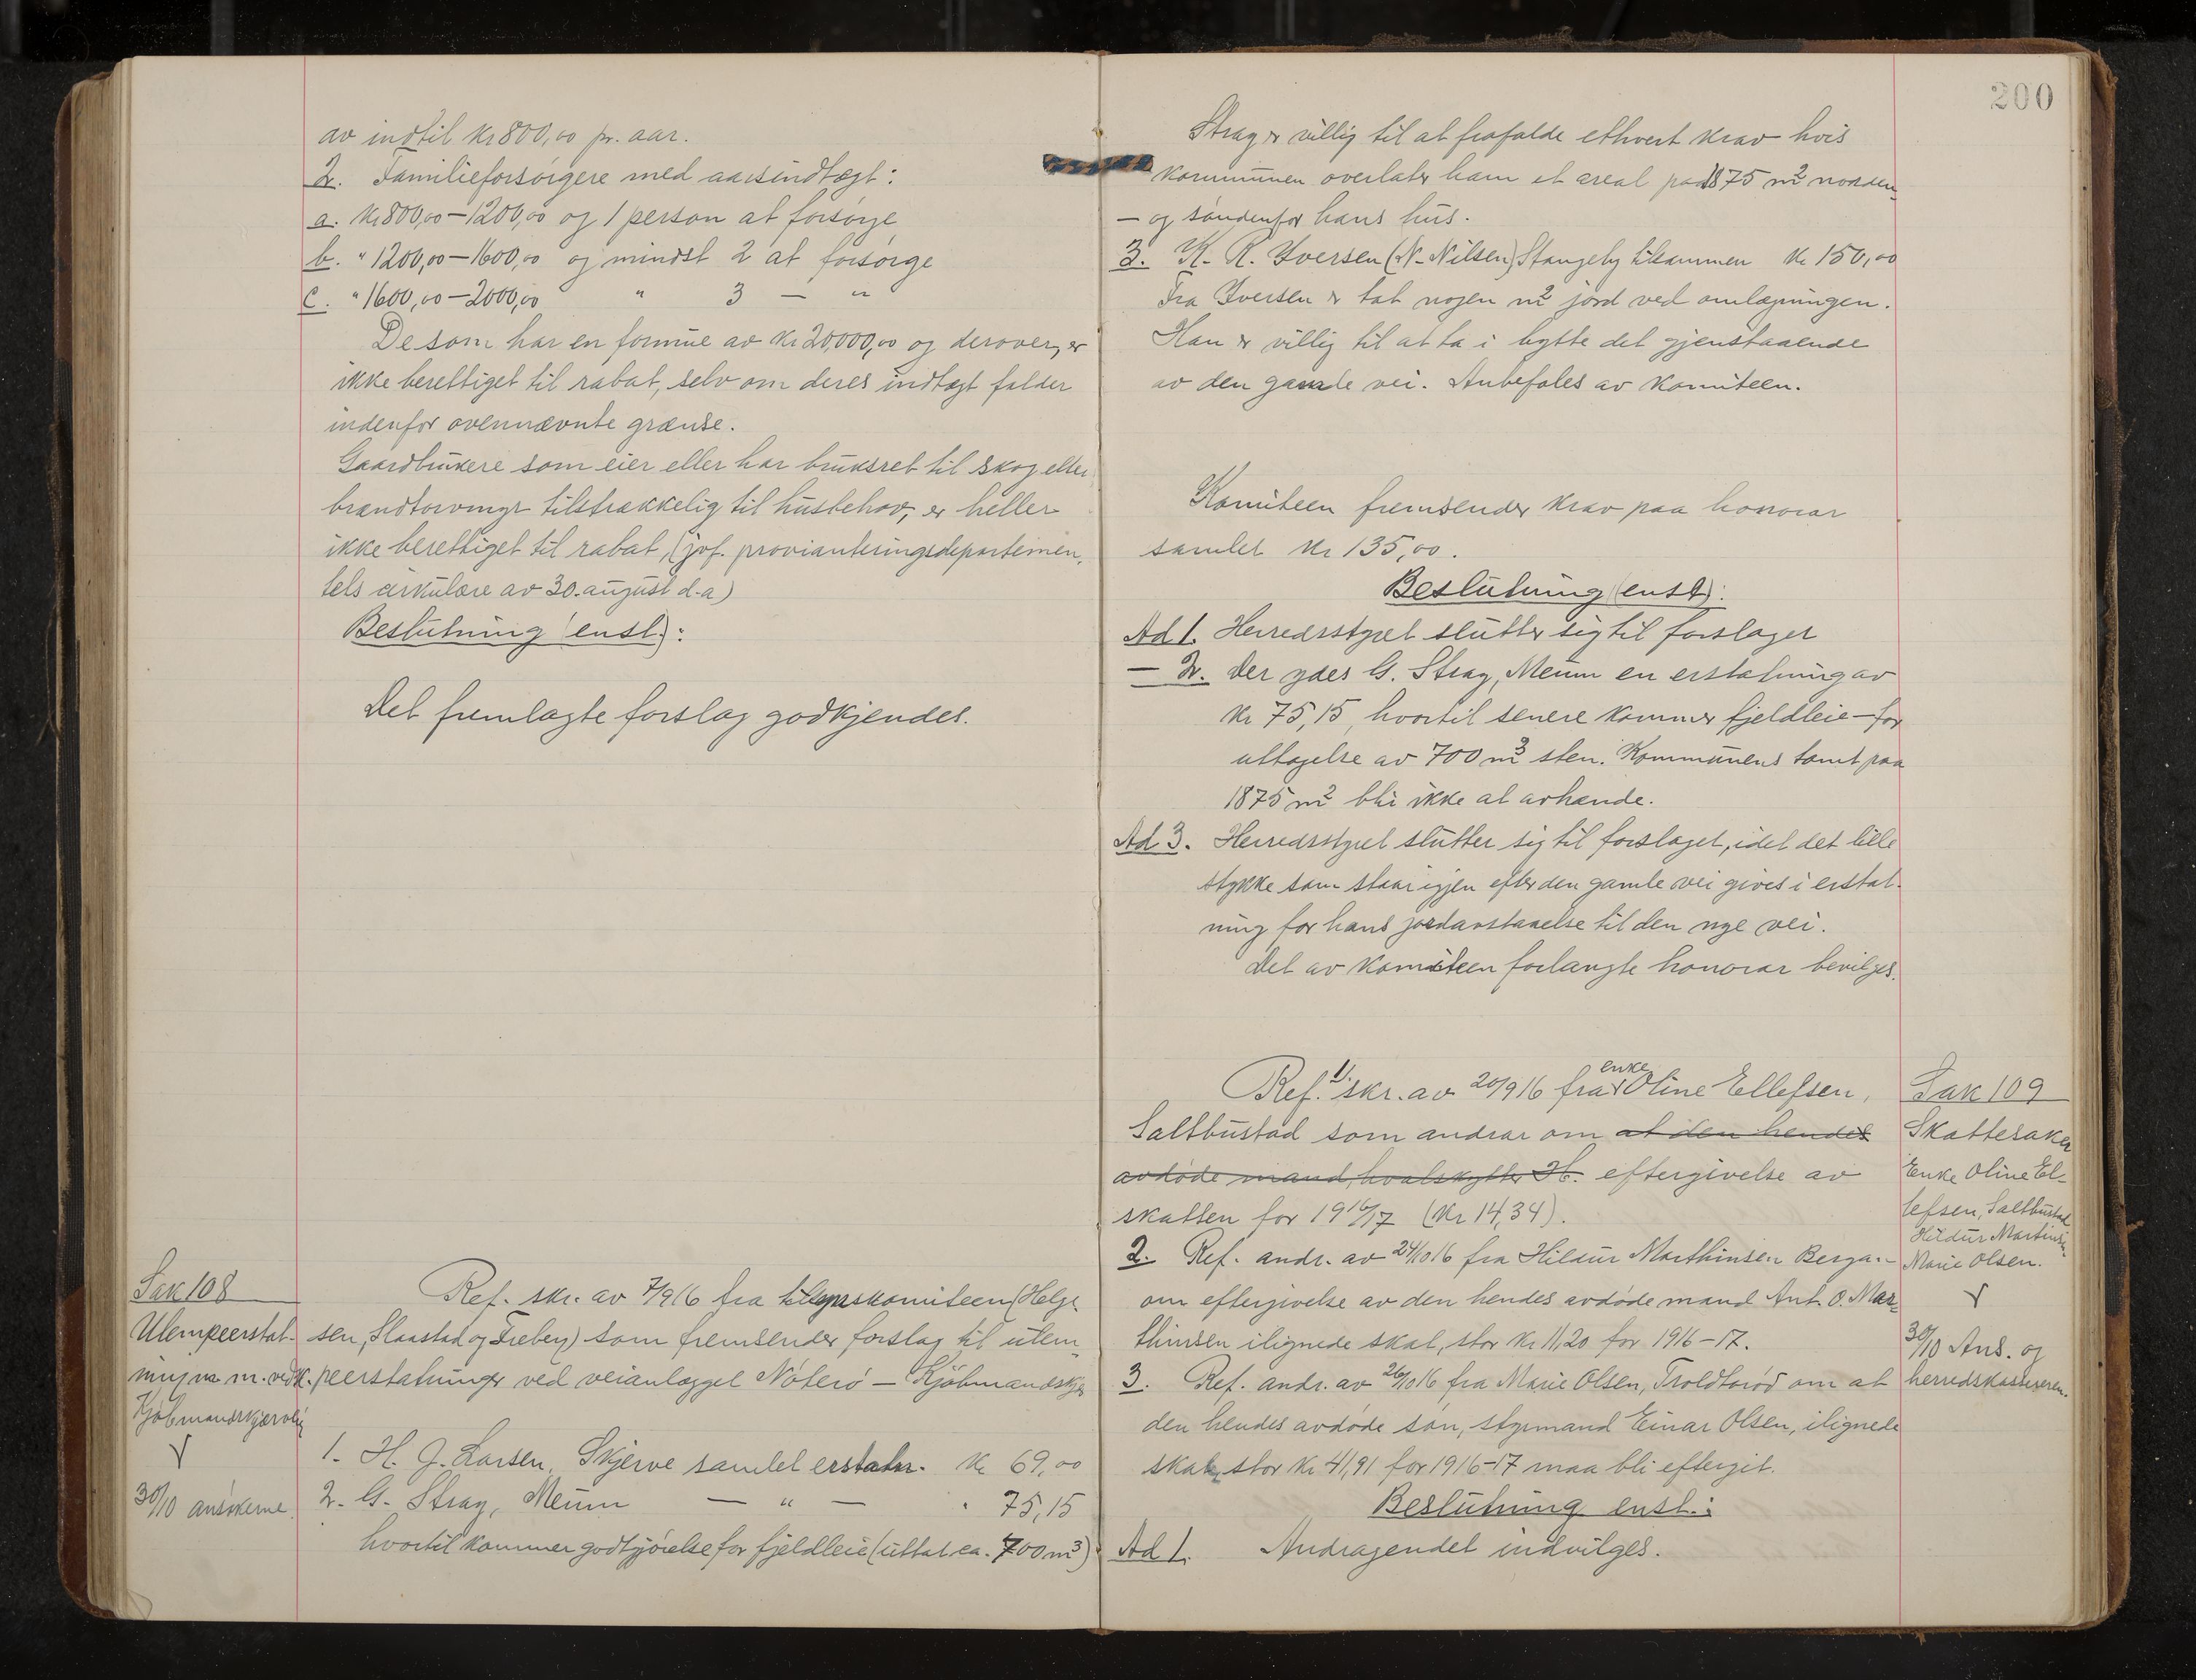 av indtil kr 800,00 pr. aar.
2. Familieforsörgere med aarsindtægt:
a. kr 800,00 – 1200,00 og 1 person at forsörge
b. " 1200,00 – 1600,00 og mindst 2 at forsörge
c. " 1600,00 – 2000,00 " 3 — "
De som har en formue av kr 20,000,00 og derover, er
ikke berettiget til rabat, selv om deres indtægt falder
indenfor ovennævnte grænse.
Gaardbrukere som eier eller har bruksret til skog eller
brændtorvmyr tilstrækkelig til husbehov, er heller
ikke berettiget til rabat, (jvf. provianteringsdepartemen-
tets cirkulære av 30. august d.a)
Beslutning (enst):
Det fremlagte forslag godkjendes.
Sak 108
Ulempeerstat-
ning m. m. vedk.
Kjöbmandskjærvei
V
30/10 ansökerne.
Ref. skr. av 7/916 fra tilsynskomiteen (Helge-
sen, Slaastad og Freberg) som fremsender forslag til ulem-
peerstatninger ved veianlægget Nöterö – Kjöbmandskjær
1. H. J. Larsen, Skjerve samlet erstatn. kr 69,00
2. G. Stray, Meum — " — " 75,15
hvortil kommer godtgjörelse for fjeldleie (uttat ca. 700 m3)
200
Stray er villig til at frafalde ethvert krav hvis
kommunen overlater ham et areal paa 1875 m2 norden-
– og söndenfor hans hus.
3. K. R. Iversen (N. Nilsen) Stangeby tilsammen kr 150,00
Fra Iversen er tat nogen m2 jord ved omlægningen.
Han er villig til at ta i bytte det gjenstaaende
av den gamle vei. Anbefales av komiteen.
Komiteen fremsender krav paa honorar
samlet kr 135,00.
Beslutning (enst):
Ad 1. Herredsstyret slutter sig til forslaget
— 2. Der ydes G. Stray, Meum en erstatning av
kr 75,15, hvortil senere kommer fjeldleie for
uttagelse av 700 m3 sten. Kommunens tomt paa
1875 m2 blir ikke at avhænde.
Ad 3. Herredsstyret slutter sig til forslaget, idet det lille
stykke som staar igjen efter den gamle vei gives i erstat-
ning for hans jordavstaaelse til den nye vei.
Det av komiteen forlangte honorar bevilges.
Ref. 1. skr. av 20/916 fra enke Oline Ellefsen,
Saltbustad som andrar om at den hendes
avdöde mand, hvalskytter H. eftergivelse av
skatten for 1916/17 (kr 14,34).
2. Ref. andr. av 24/1016 fra Hildur Marthinsen Bergan
om eftergivelse av den hendes avdöde mand Ant. O. Mar-
thinsen ilignede skat, stor kr 11,20 for 1916–17.
3. Ref. andr. av 26/1016 fra Marie Olsen, Troldbaröd om at
den hendes avdöde sön, styrmand Einar Olsen, ilignede
skat, stor kr 41,91 for 1916–17 maa bli eftergit.
Beslutning enst.:
Ad 1. Andragendet indvilges.
Sak 109
Skattesaker
Enke Oline El-
lefsen, Saltbustad
Hildur Martinsen
Marie Olsen.
V
30/10 Ans. og
herredskassereren.